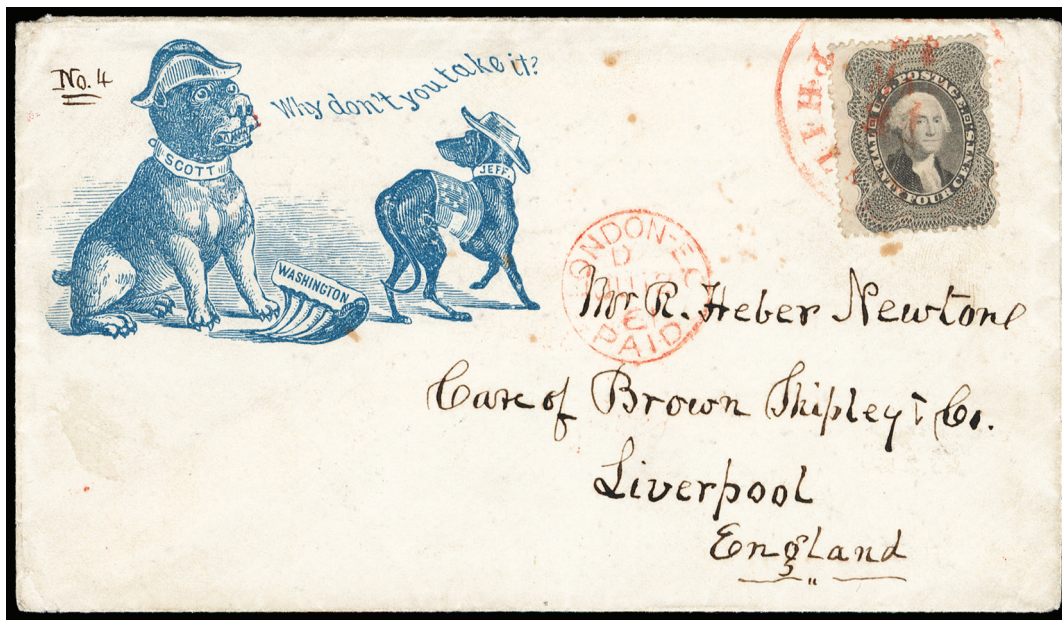 No. 4
Why don't you take it?
SCOTT
JEFF.
WASHINGTON
U.S. POSTAGE
TWENTY FOUR CENTS
LONDON-E.C.
PAID
Mr R. Heber Newton
Care of Brown Shipley & Co.
Liverpool
England